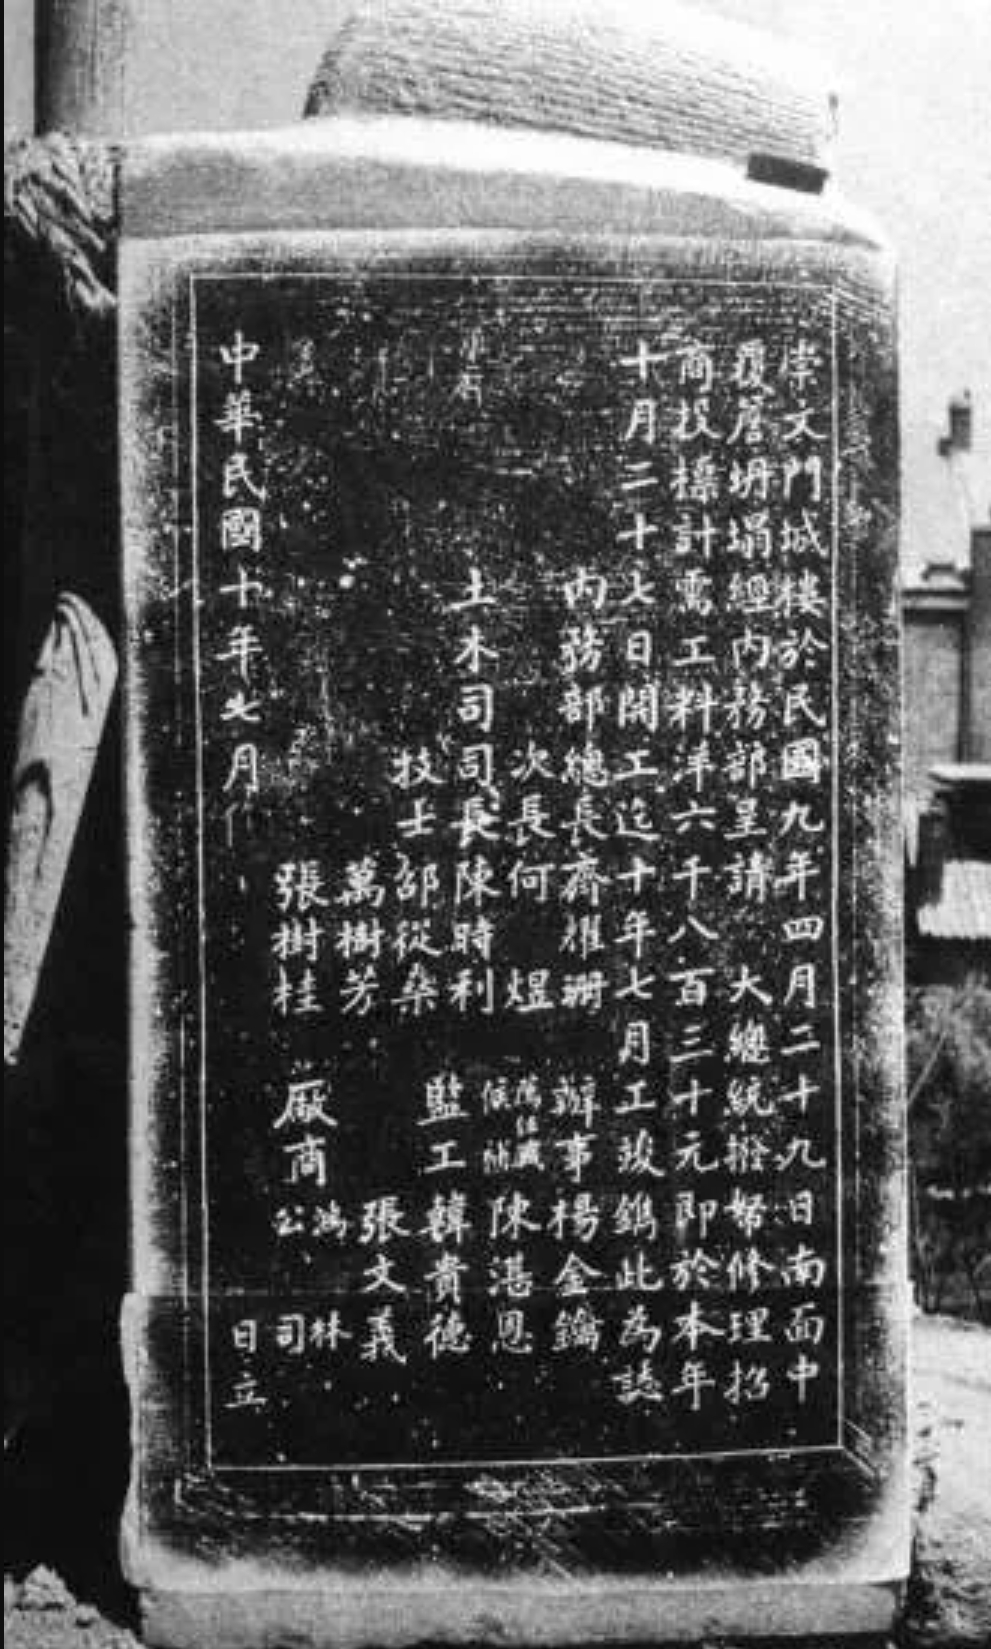 崇文門城樓於民國九年四月二十九日南面中
覆簷坍塌經內務部呈請 大總統撥帑修理招
商投標計需工料洋六千八百三十元即於本年
十月二十七日開工迄十年七月工竣鐫此為誌
內務部總長齊耀珊 辦事楊金鑰
次長何 煜 薦任職候補陳湛恩
土木司司長陳時利 監工韓貴德
技士邵從燊 張文義
萬樹芳
張樹桂 廠商鴻林公司
中華民國十年七月 日立